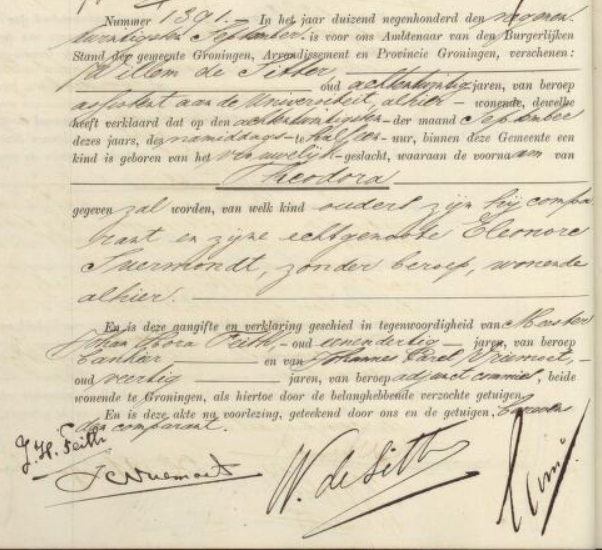 Nummer 1391.- In het jaar duizend negenhonderd den negenen
twintigsten September. is voor ons Ambtenaar van den Burgerlijken
Stand der gemeente Groningen, Arrondissement en Provincie Groningen, verschenen:
Willem de Sitter,
oud achtentwintig jaren, van beroep
assistent aan de Universiteit, alhier - wonende, dewelke
heeft verklaard dat op den achtentwintigsten - der maand September
dezes jaars, des namiddags - te half een - uur, binnen deze Gemeente een
kind is geboren van het vrouwelijk - geslacht, waaraan de voornaam van
Theodora
gegeven zal worden, van welk kind ouders zijn hij compa
rant en zijne echtgenoote Eleonore
Suermondt, zonder beroep, wonende
alhier.
En is deze aangifte en verklaring geschied in tegenwoordigheid van Meester
Johan Hora Feith, - oud eenendertig - jaren, van beroep
bankier en van Johannes Carel Vriemoet, -
oud veertig jaren, van beroep adjunct commies, beide
wonende te Groningen, als hiertoe door de belanghebbende verzochte getuigen.
En is deze akte na voorlezing, geteekend door ons en de getuigen, benevens
den comparant.
J.H. Feith
JCVriemoet
W. de Sitter